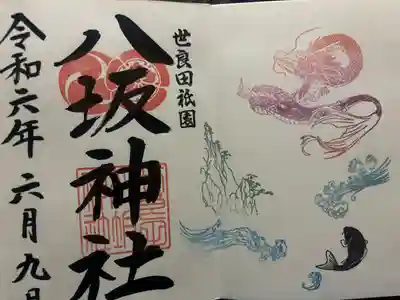 世良田祇園
八坂神社
令和六年 六月九日